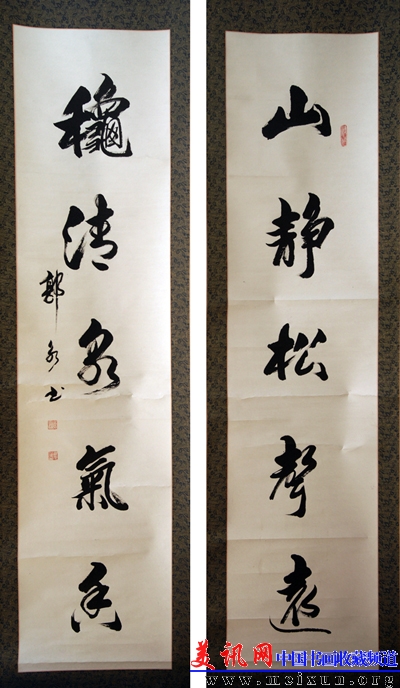 山静松聲遠
穐清泉氣香
郭 书
美讯网 中国书画收藏频道
www.meixun.org